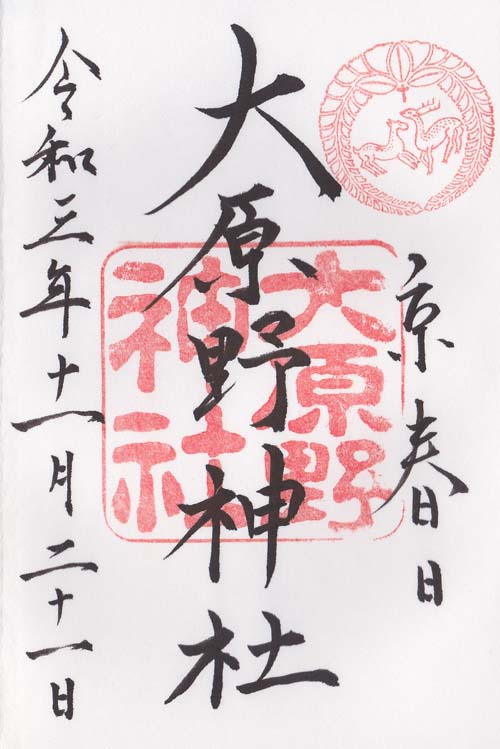 京春日
大原野神社
大原野
神社
令和三年十一月二十一日